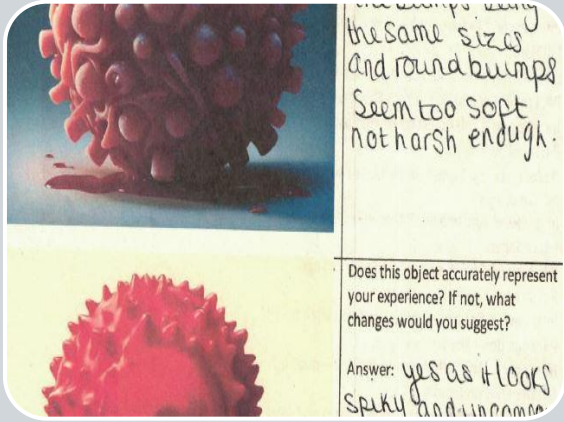 the bumps being
the same sizes
and round buumps
Seem too soft
not harsh enough.
Does this object accurately represent
your experience? If not, what
changes would you suggest?
Answer: yes as it looks
spiky and